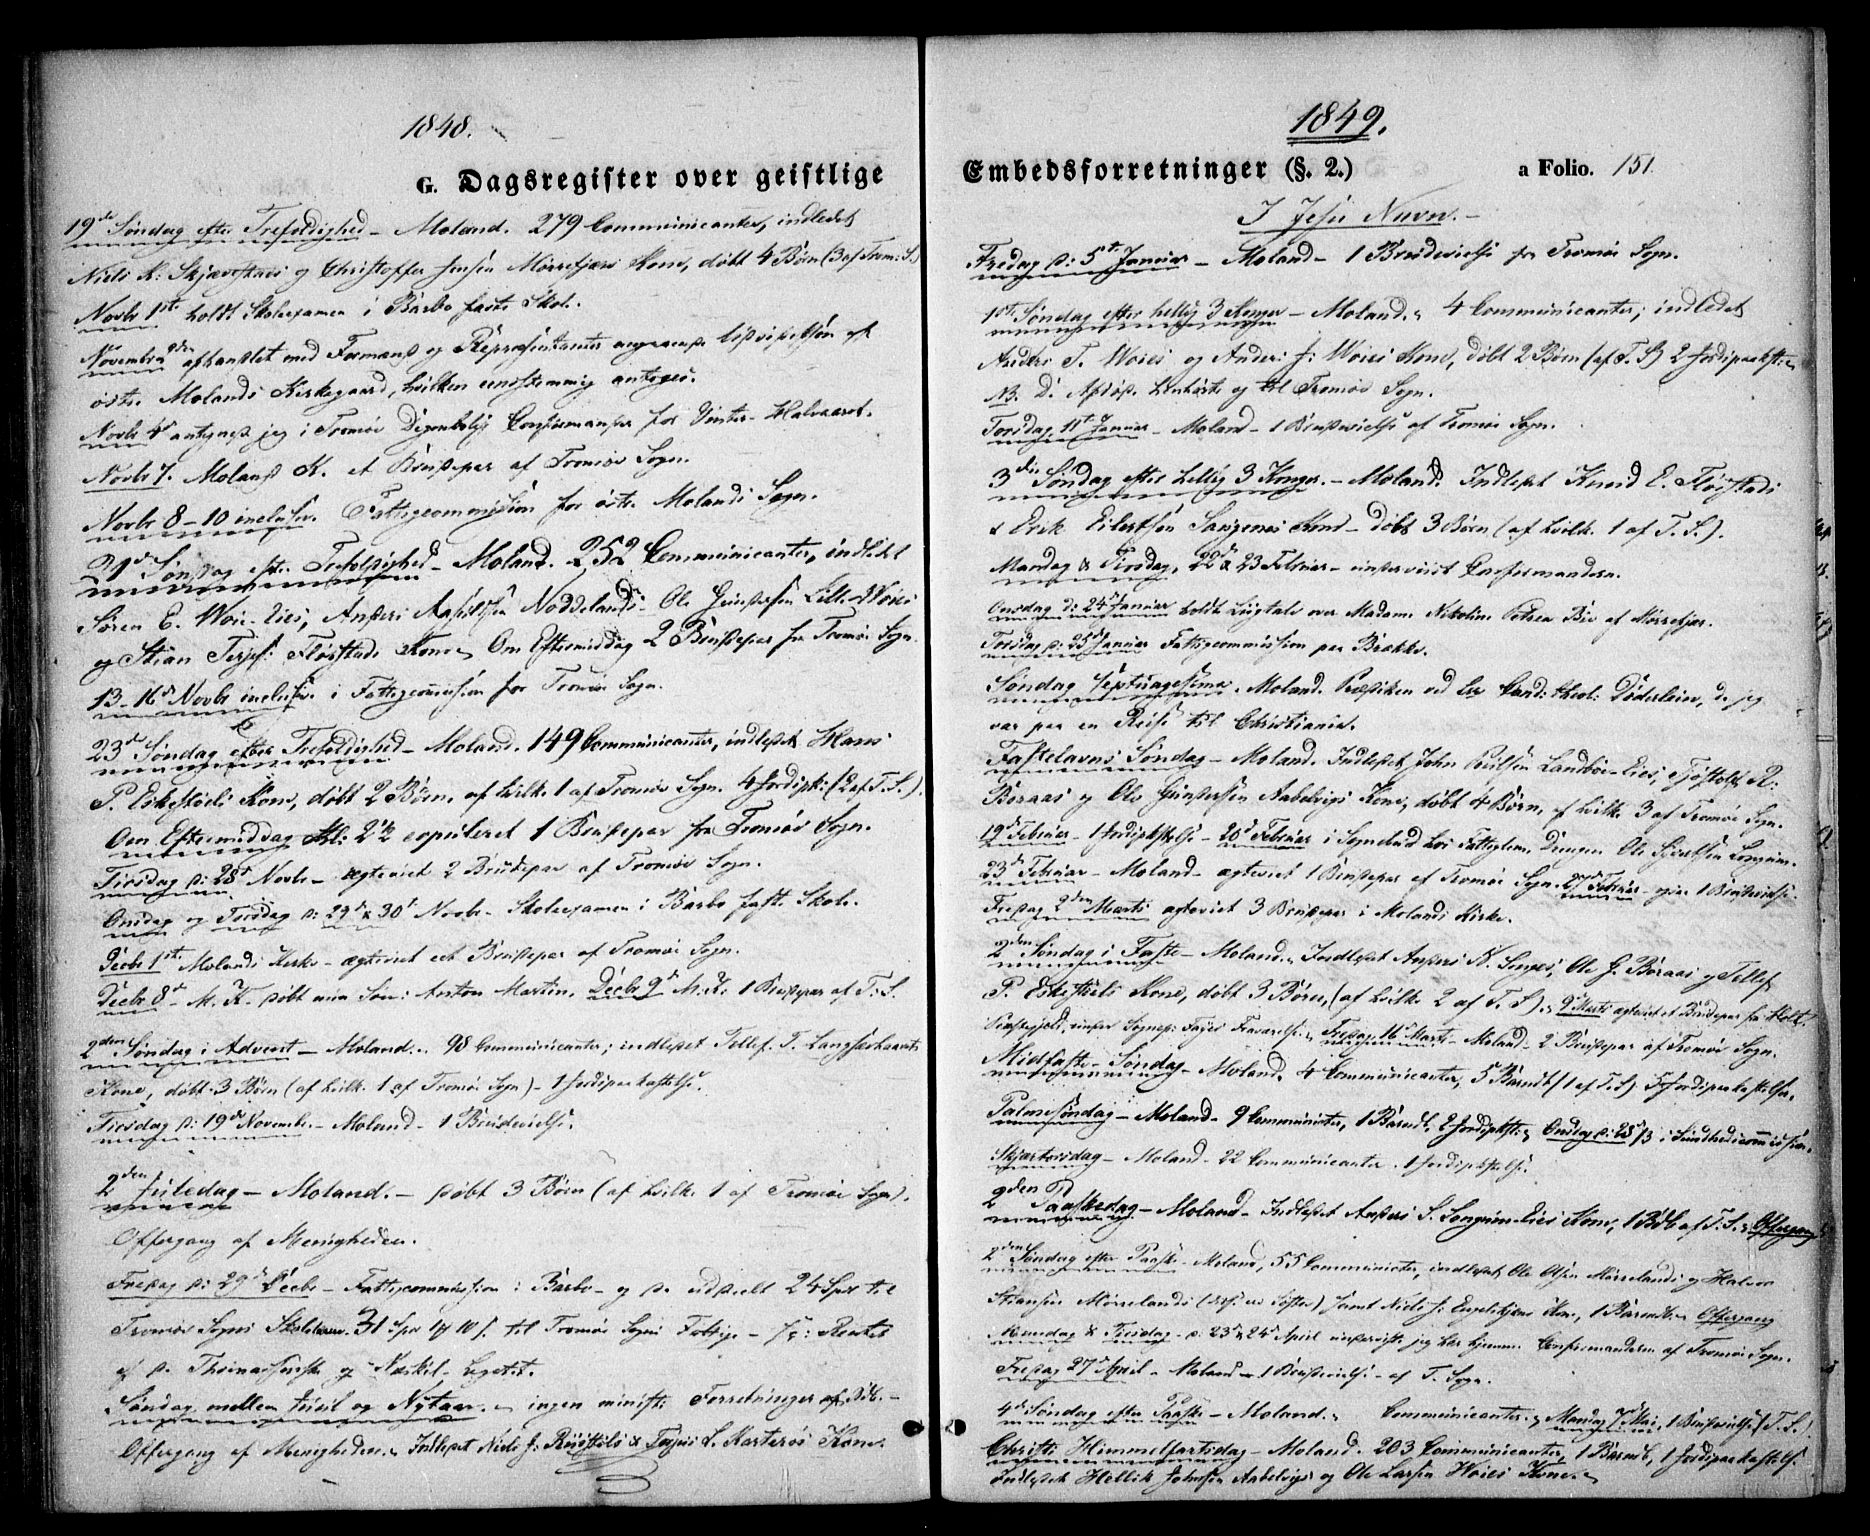 1848.
G. Dagsregister over geistlige
19de Søndag efter Trefoldighed - Moland. 279 Communicanter, indledet
Niels K: Skjævestads og Christoffer Jensen Mørrefjærs Kone, døbt 4 Børn (3 af Trom: S.)
Novbr 1ste holdt Skoleexamen i Barbo faste Skole.
Novembr afhandlet med Formænd og Repræsentanter angaaende af
østre Molands Kirkegaard, hvilken eenstemmig antoges.
Novbr 4 jeg i Tromøe Confirmander for Vinter-Halvaaret.
Novbr 7. Moland K. et Brudepar af Tromøe Sogn.
Novbr 8-10 inclusive. Fattigcommission for østre Molands Sogn.
21de Søndag eftr. Trefoldighed - Moland. 252 Communicanter, indledet
Søren E. Woie-Eies, Anders Noddelands, Ole Gundersen Lille-Woies
og Stian Terjes: Fløystads Kone. Om Eftermiddag 2 Brudepar fra Tromøe Sogn.
13-16de Novbr inclusive i Fattigcommission for Tromøe Sogn.
23de Søndag efter Trefoldighed - Moland. 149 Communicanter, indledet Hans
P. Eskestøels Kone, døbt 2 Børn, af hvilke 1 af Tromøe Sogn. 4 Jordspk: (2 af T. S.).
Om Eftermiddag Kl: 2½ copuleret 1 Brudepar fra Tromøe Sogn.
Tirsdag d: 28de Novbr - ægteviet 2 Brudepar af Tromøe Sogn.
Onsdag og Torsdag d: 29de & 30te Novbr - Skoleexamen i Barbo faste Skole.
Decbr 1ste Molands Kirke - ægteviet eet Brudepar af Tromøe Sogn.
Decbr 8de M. K. døbt min Søn: Anton Martin, Decbr 9de M. K. 1 Brudepar af T: S.
2den Søndag i Advent - Moland. 98 Communicanter; indledet Tellef T. Langsækaaens
Kone, døbt 3 Børn (af hvilke 1 af Tromøe Sogn) - 1 Jordspaakastelse.
Tirsdag d: 19de November - Moland - 1 Brudevielse.
2den Juledag - Moland. - døbt 3 Børn (af hvilke 1 af Tromøe Sogn).
Offergang af Menigheden.
Fredag d: 29de Decbr - Fattigcommission i Barbo - og d. uddeelt 24 Spd til
Tromøe Sogns Skolelærere. 31 Spd 10 s. til Tromøe Sogns Fattige - Renter
af d. og Næskil-Legatet.
Søndag mellem Juul og Nytaar. ingen minist: Forretninger
Offergang af Menigheden. Indledet Niels J: & S. Kone.
1849.
Embedsforretninger (§. 2.)
a Folio. 151.
I Jesu Navn. -
Fredag d: 5te Januar - Moland - 1 Brudevielse fra Tromøe Sogn.
1ste Søndag efter hellig 3 Konger - Moland. 4 Communicanter; indledet
Anders T. Woies og Anders J: Woies Kone, døbt 2 Børn (af T. S) 2 Jordspaakastelser
NB. og til Tromøe Sogn.
Torsdag 11te Januar - Moland - 1 Brudevielse af Tromøe Sogn.
3die Søndag efter Hellig 3 Konger. - Moland. Indledet Knud E. Fløistads
& Erik Eilertsen Songenes Kone - døbt 3 Børn (af hvilke 1 af T. S.).
Mandag & Tirsdag, 22de & 23 Februar - underviist Confirmanderne.
Onsdag d: 24de Januar holdt Liigtale over Madame Nikoline Petrea Bie af Mørrefjær.
Torsdag d: 25de Januar Fattigcommission paa Brække.
Søndag Septuagesima. Moland. Prædiken ved Hr Cand: theol: Døderlein, da jeg
var paa en Reise til Christiania.
Fastelavns Søndag - Moland. Indledet John Poulsen Landbøe-Eies, Tjøstolf R:
Boraas og Ole Gundersen Aabelvigs Kone, døbt 4 Børn, af hvilke 3 af Tromøe Sogn.
19de Februar - 1 Jordspkstelse - 20de Februar i Sognebud hos Fattiglem Drengen Ole
23de Februar - Moland - ægteviet 1 Brudepar af Tromøe Sogn. 27de Februar 1 Brudevielse.
Fredag 2den Marts ægteviet 3 Brudepar i Molands Kirke.
2den Søndag i Faste - Moland. Indledet Anders N. Longums, Ole G. Boraas og Tellef
P. Eskestøels Kone, døbt 3 Børn, (af hvilke 2 af T. S.). 9de Marts ægteviet et Brudepar fra Holt
Præstegjeld, under Sognep: Fayes Fraværelse. Fredag 16de Marts - Moland - 2 Brudepar af Tromøe Sogn.
Midfaste-Søndag - Moland. 4 Communicanter, 5 Barnedb (1 af T. S) Jordspaakastelser.
Palmesøndag - Moland - 9 Communicanter, 1 Barned., 2 Jordspkst:. Onsdag d: 28/3 i Sundhedscommission.
Skjærtorsdag - Moland - 22 Communicanter. 1 Jordspkstelse.
2den Paaskedag - Moland - Indledet Anders S. Longum-Eies Kone, 1 Bdb af T. S. Offergang
2den Søndag efter Paaske - Moland, 55 Communicanter, indledet Ole Olsen Mørrelands og Halvor
Stiansen Mørrelands samt Niels J: Kone, 1 Barnedb. Offergang
Mandag & Tirsdag - d: 23de & 24de April underviiste jeg her hjemme Confirmanderne af Tromøe Sogn.
Fredag 27de April - Moland - 1 Brudevielse - af T. Sogn.
4de Søndag efter Paaske - Moland. Communicanter. Mandag 7de Mai, 1 Brudevielse (T. S.)
Christi Himmelfartsdag - Moland. 203 Communicanter, 1 Barnedb, 1 Jordspaakastelse
Indledet Hellik Johnsen Aabelvigs og Ole Larsen Woies Kone.